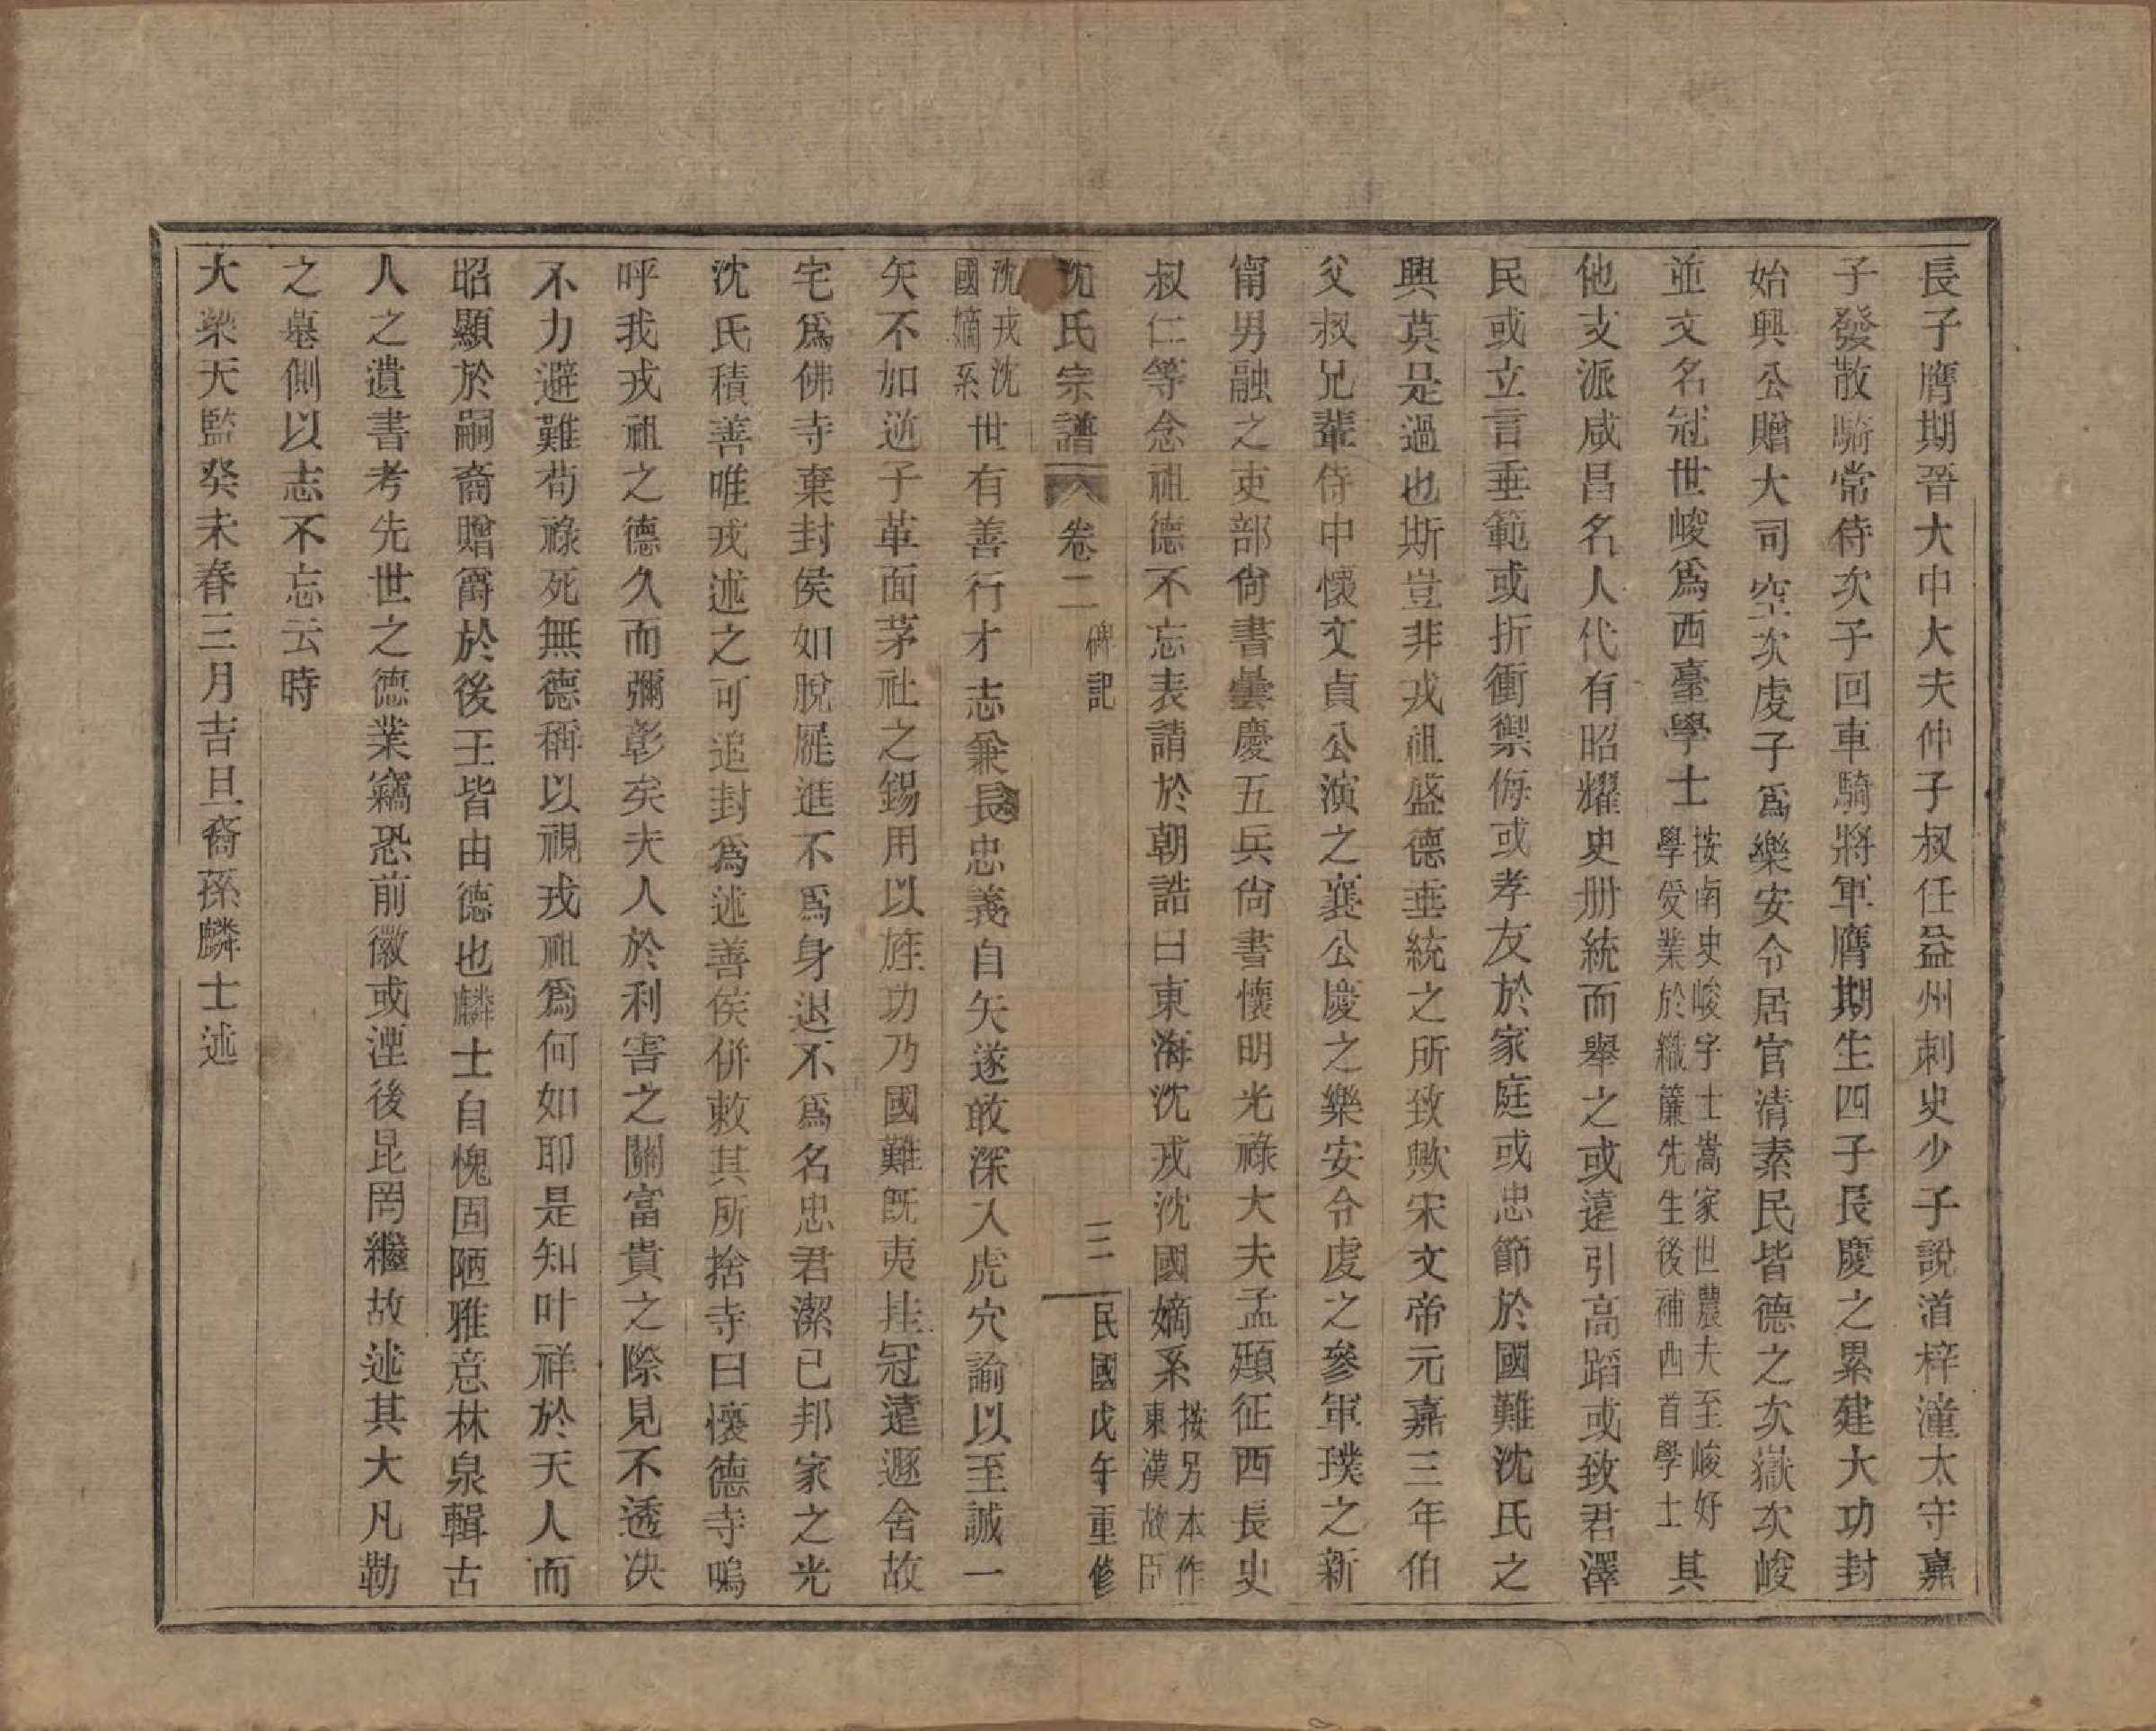 長子膺期晉大中大夫仲子叔任益州刺史少子說道梓潼太守嘉
子發散騎常侍次子回車騎將軍膺期生四子長慶之累建大功封
始興公贈大司空次虔子爲樂安令居官清素民皆德之次嶽次峻
並文名冠世峻爲西臺學士按南史峻字士嵩家世農夫至峻好學受業於織簾先生後補西首學士其
他支派咸昌名人代有昭耀史册統而舉之或遠引高蹈或致君澤
民或立言垂範或折衝禦侮或孝友於家庭或忠節於國難沈氏之
興莫是過也斯豈非戎祖盛德垂統之所致歟宋文帝元嘉三年伯
父叔兄輩侍中懷文貞公演之襄公慶之樂安令虔之參軍璞之新
甯男融之吏部尙書曇慶五兵尙書懷明光祿大夫孟顒征西長史
叔仁等念祖德不忘表請於朝誥曰東海沈戎沈國嫡系按另本作東漢故臣
沈氏宗譜 卷二 碑記 三 民國戊午重修
沈戎沈國嫡系世有善行才志兼長忠義自矢遂敢深入虎穴諭以至誠一
矢不加逆子革面茅社之錫用以旌功乃國難旣夷挂冠遠遯舍故
宅爲佛寺棄封侯如脫屣進不爲身退不爲名忠君潔已邦家之光
沈氏積善唯戎述之可追封爲述善侯併敕其所捨寺曰懷德寺嗚
呼我戎祖之德久而彌彰矣夫人於利害之關富貴之際見不透決
不力避難苟祿死無德稱以視戎祖爲何如耶是知叶祥於天人而
昭顯於嗣裔贈爵於後王皆由德也麟士自愧固陋雅意林泉輯古
人之遺書考先世之德業竊恐前徽或湮後昆罔繼故述其大凡勒
之墓側以志不忘云時
大梁天監癸未春三月吉旦裔孫麟士述